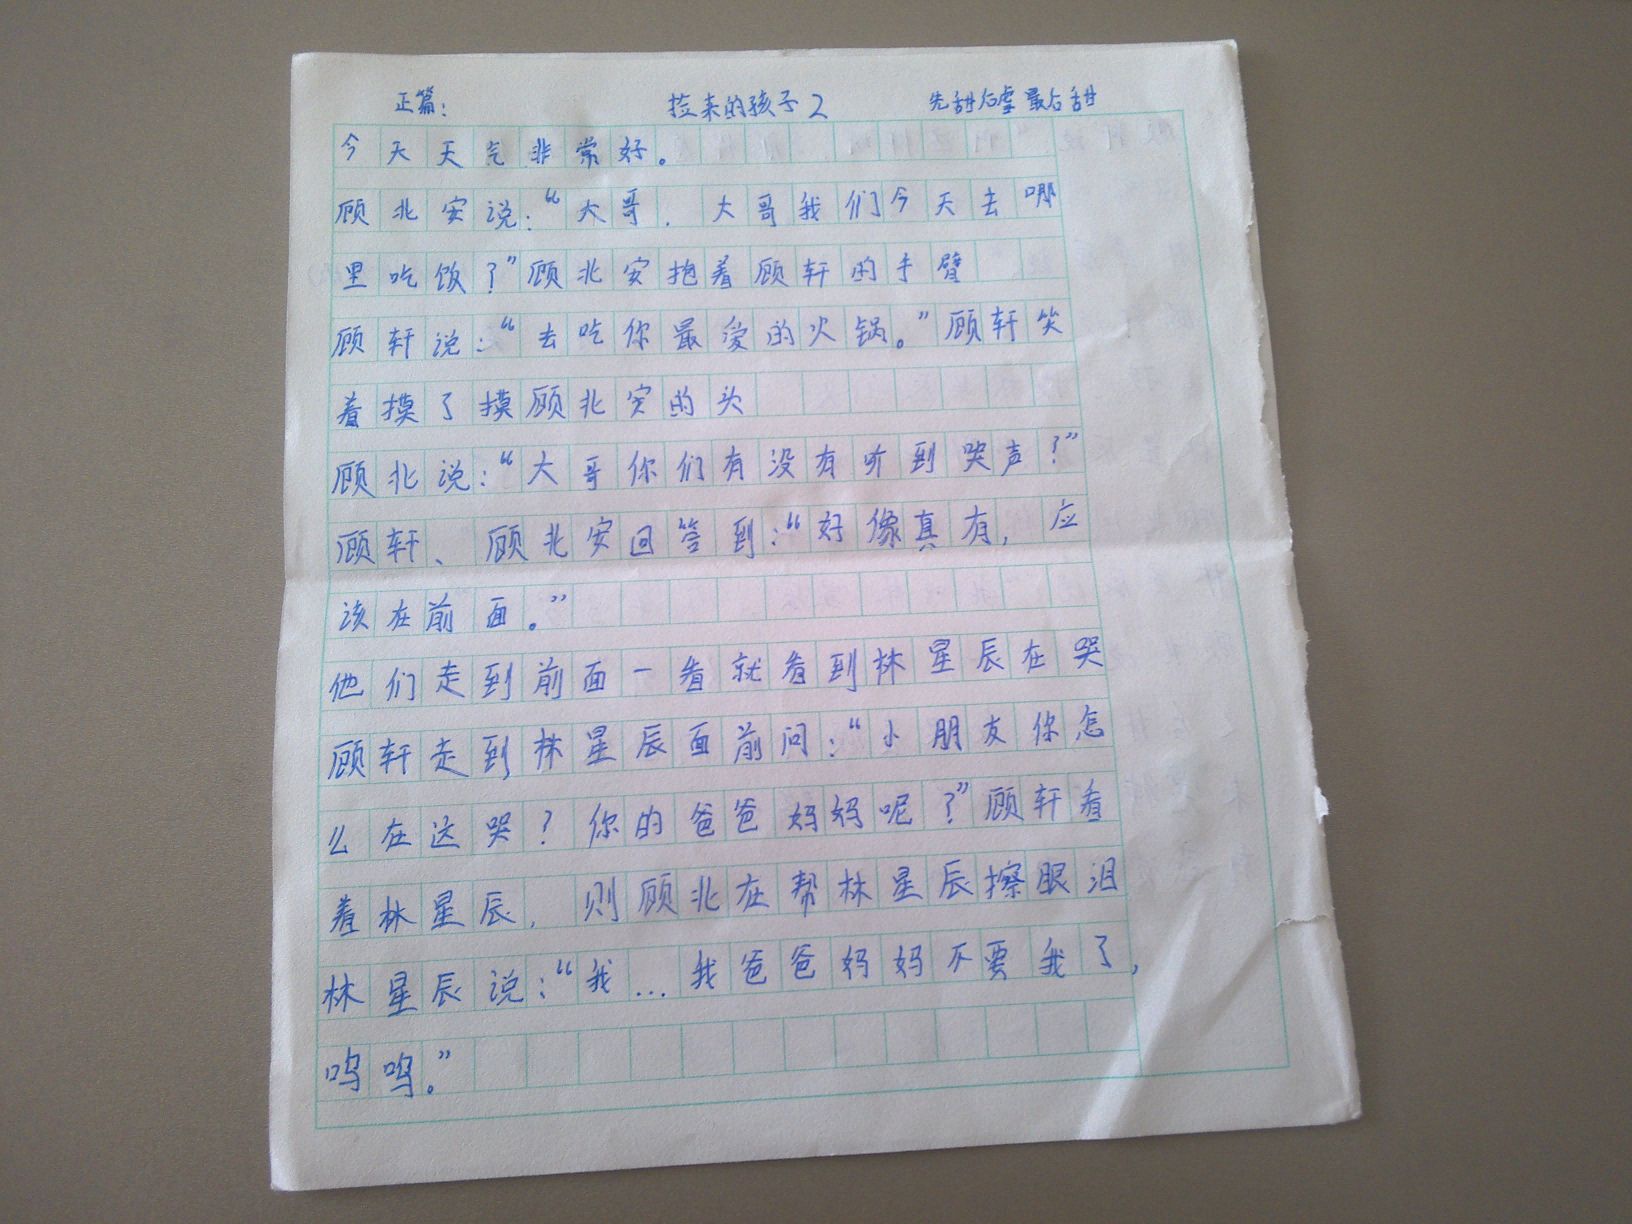 正篇： 捡来的孩子2 先甜后虐最后甜
今天天气非常好。
顾北安说：“大哥，大哥我们今天去哪
里吃饭？”顾北安抱着顾轩的手臂
顾轩说：“去吃你最爱的火锅。”顾轩笑
着摸了摸顾北安的头
顾北说：“大哥你们有没有听到哭声？”
顾轩、顾北安回答到：“好像真有，应
该在前面。”
他们走到前面一看就看到林星辰在哭
顾轩走到林星辰面前问：“小朋友你怎
么在这哭？你的爸爸妈妈呢？”顾轩看
着林星辰，则顾北在帮林星辰擦眼泪
林星辰说：“我...我爸爸妈妈不要我了，
呜呜。”